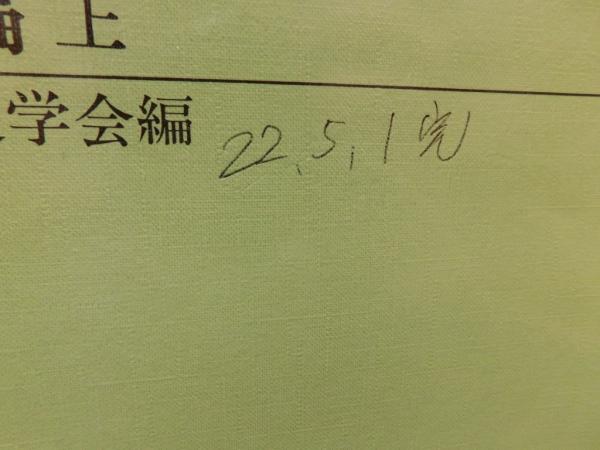 上
学会編
22.5.1完